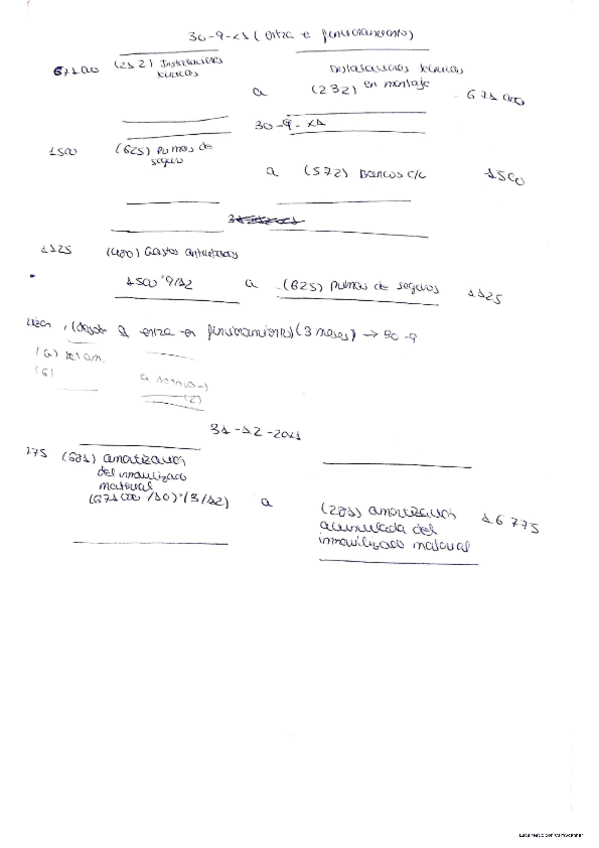 30-9-21 (entra en funcionamiento)
671000 (212) Instalaciones técnicas a (232) Instalaciones técnicas en montaje 671000
30-9-21
1500 (625) Primas de seguro a (572) Bancos c/c 1500
1125 (480) Gastos anticipados
1500·9/12 a (625) Primas de seguros 1125
(desde q entra en funcionamiento) (3 meses) → 30-9
(6)
(6) a
(2)
31-12-2021
775 (681) amortización del inmovilizado material
(671000/10)·(3/12) a (281) amortización acumulada del inmovilizado material 16775